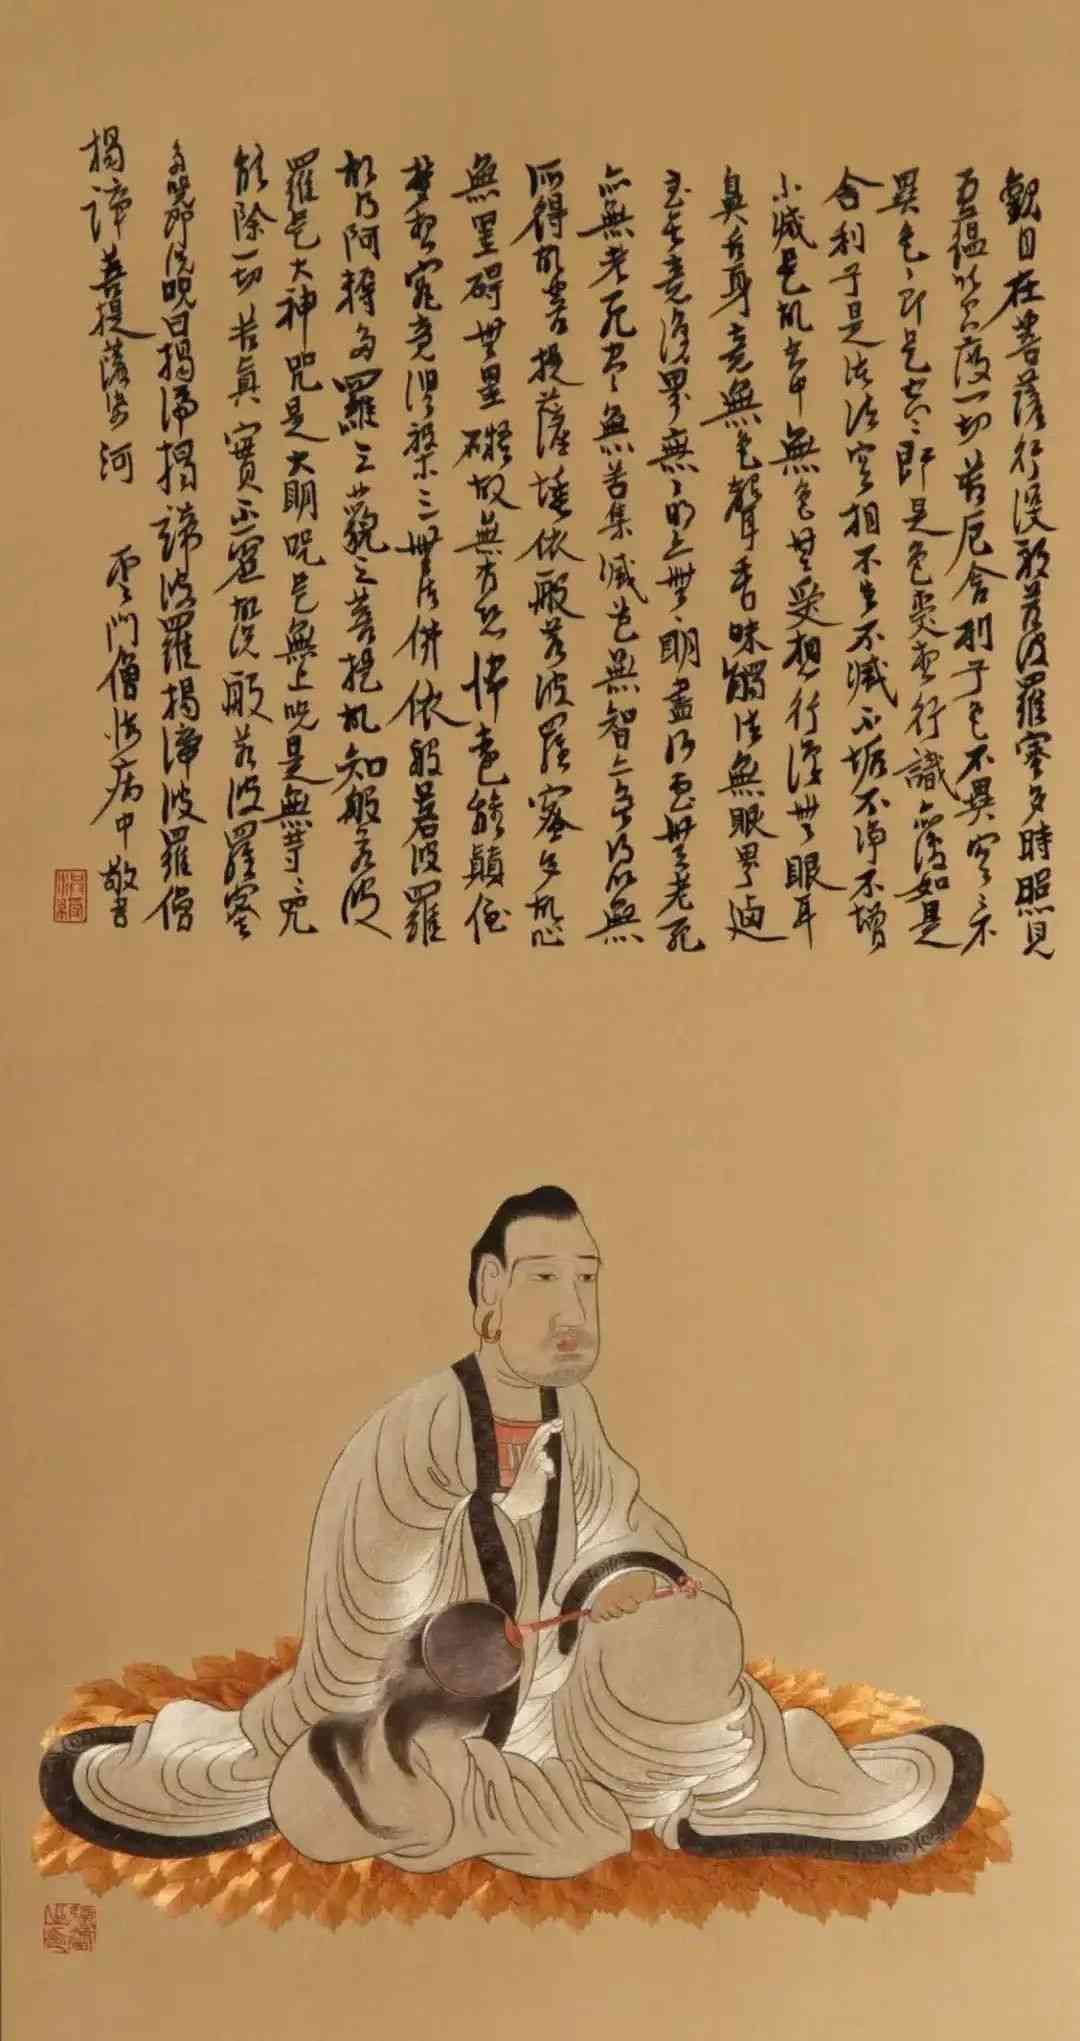 觀自在菩薩行深般若波羅蜜多時照見
五蘊皆空度一切苦厄舍利子色不異空空不
異色色即是空空即是色受想行識亦復如是
舍利子是諸法空相不生不滅不垢不淨不增
不減是故空中無色無受想行識無眼耳
鼻舌身意無色聲香味觸法無眼界迺
至無意識界無無明亦無無明盡乃至無老死
亦無老死盡無苦集滅道無智亦無得以無
所得故菩提薩埵依般若波羅蜜多故心
無罣礙無罣礙故無有恐怖遠離顛倒
夢想究竟涅槃三世諸佛依般若波羅
故乃阿耨多羅三藐三菩提故知般若波
羅是大神咒是大明咒是無上咒是無等等咒
能除一切苦真實不虛故說般若波羅蜜
多咒即說咒曰揭諦揭諦波羅揭諦波羅僧
揭諦菩提薩婆訶 雲門僧 病中敬書